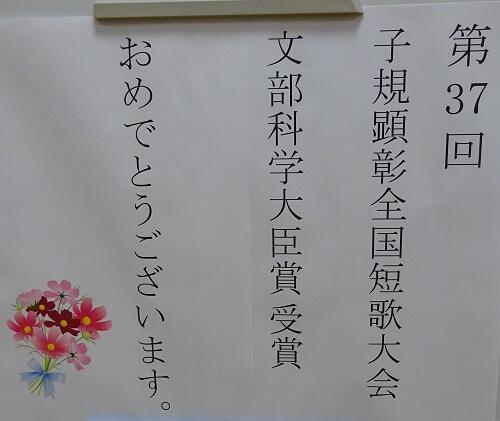 第37回
子規顕彰全国短歌大会
文部科学大臣賞受賞
おめでとうございます。